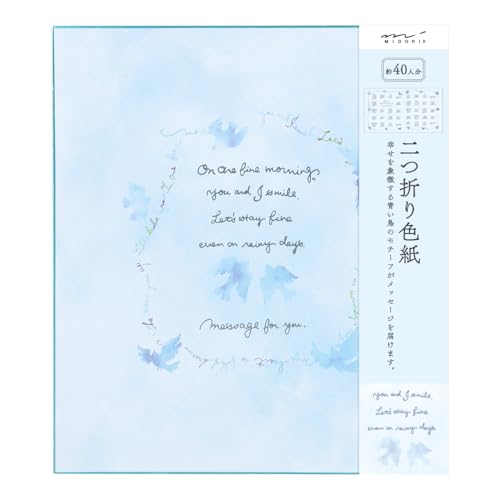 On one fine morning,
you and I smile.
Let's stay fine
even on rainy days.
message for you.
MIDORI
約40人分
二つ折り色紙
幸せを象徴する青い鳥のモチーフがメッセージを届けます。
you and I smile.
Let's stay fine
even on rainy days.